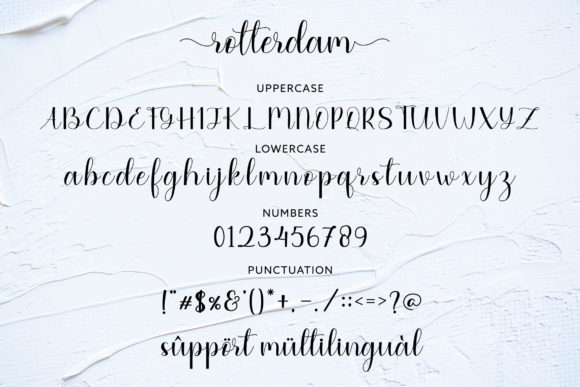 rotterdam
UPPERCASE
ABCDEFGHIJKLMNOPQRSTUVWXYZ
LOWERCASE
abcdefghijklmnopqrstuvwxyz
NUMBERS
0123456789
PUNCTUATION
!"#$%&'()*+,-./:;<=>?@
sûppört mültilinguàl